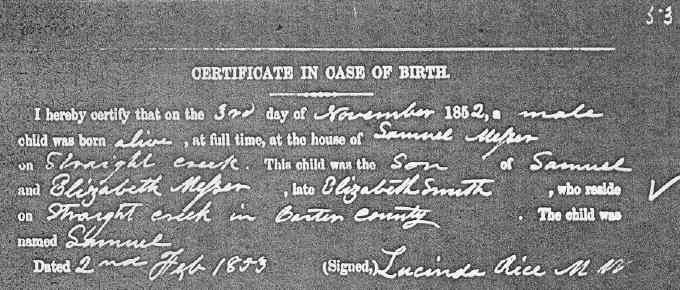 53
CERTIFICATE IN CASE OF BIRTH.
I hereby certify that on the 3rd day of November 1852, a male
child was born alive, at full time, at the house of Samuel Messer
on Straight creek. This child was the Son of Samuel
and Elizabeth Messer, late Elizabeth Smith, who reside
on Straight creek in Carter County. The child was
named Samuel
Dated 2nd Feb 1853 (Signed,) Lucinda Rice M W